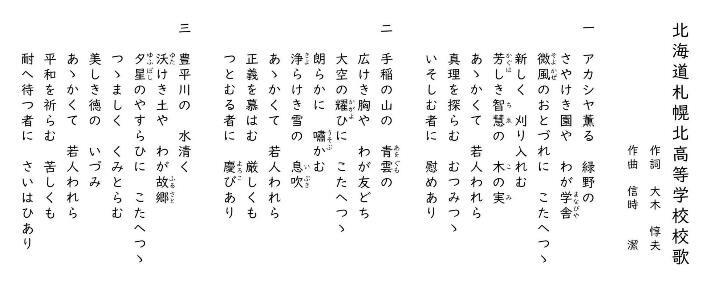 北海道札幌北高等学校校歌
作詞 大木 惇夫
作曲 信時 潔
一 アカシヤ薫る 緑野の
さやけき園や わが学舎
微風のおとづれに こたへつゝ
新しく 刈り入れむ
芳しき智慧の 木の実
あゝかくて 若人われら
真理を探らむ むつみつゝ
いそしむ者に 慰めあり
二 手稲の山の 青雲の
広けき胸や わが友どち
大空の耀ひに こたへつゝ
朗らかに 嘯かむ
浄らけき雪の 息吹
あゝかくて 若人われら
正義を慕はむ 厳しくも
つとむる者に 慶びあり
三 豊平川の 水清く
沃けき土や わが故郷
夕星のやすらひに こたへつゝ
つゝましく くみとらむ
美しき徳の いづみ
あゝかくて 若人われら
平和を祈らむ 苦しくも
耐へ待つ者に さいはひあり